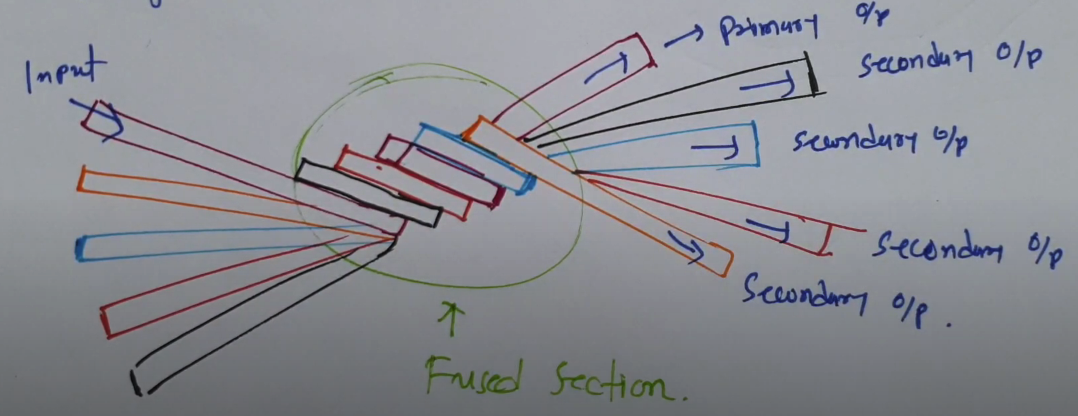 Input
Primary O/p
Secondary O/p
Secondary O/p
Secondary O/p
Secondary O/p.
Fused Section.